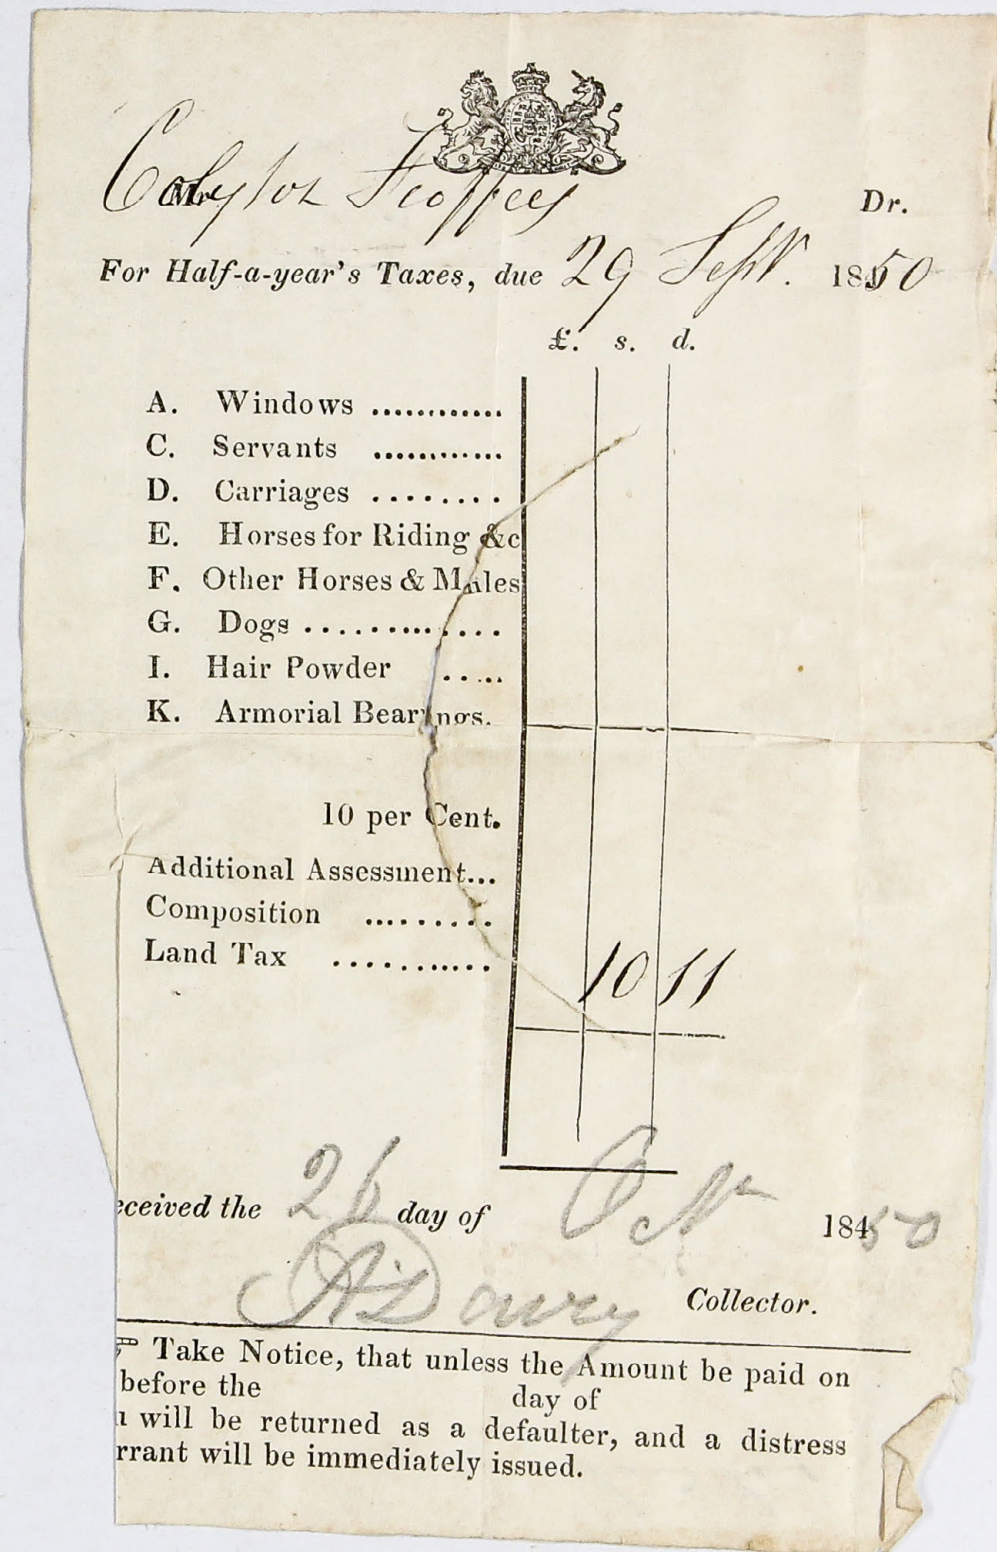 Mr Colyton Feoffees Dr.
For Half-a-year's Taxes, due 29 Sept. 1850
£. s. d.
A. Windows ............
C. Servants ............
D. Carriages ........
E. Horses for Riding &c
F. Other Horses & Mules
G. Dogs .............
I. Hair Powder .....
K. Armorial Bearings.
10 per Cent.
Additional Assessment...
Composition .........
Land Tax .......... 10 11
eceived the 26 day of Oct 18450
Davey Collector.
☞ Take Notice, that unless the Amount be paid on
before the day of
u will be returned as a defaulter, and a distress
rrant will be immediately issued.